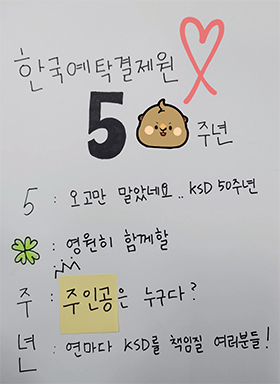 한국예탁결제원
50주년
5 : 오고만 말았네요.. KSD 50주년
: 영원히 함께할
주 : 주인공은 누구다?
년 : 연마다 KSD를 책임질 여러분들!